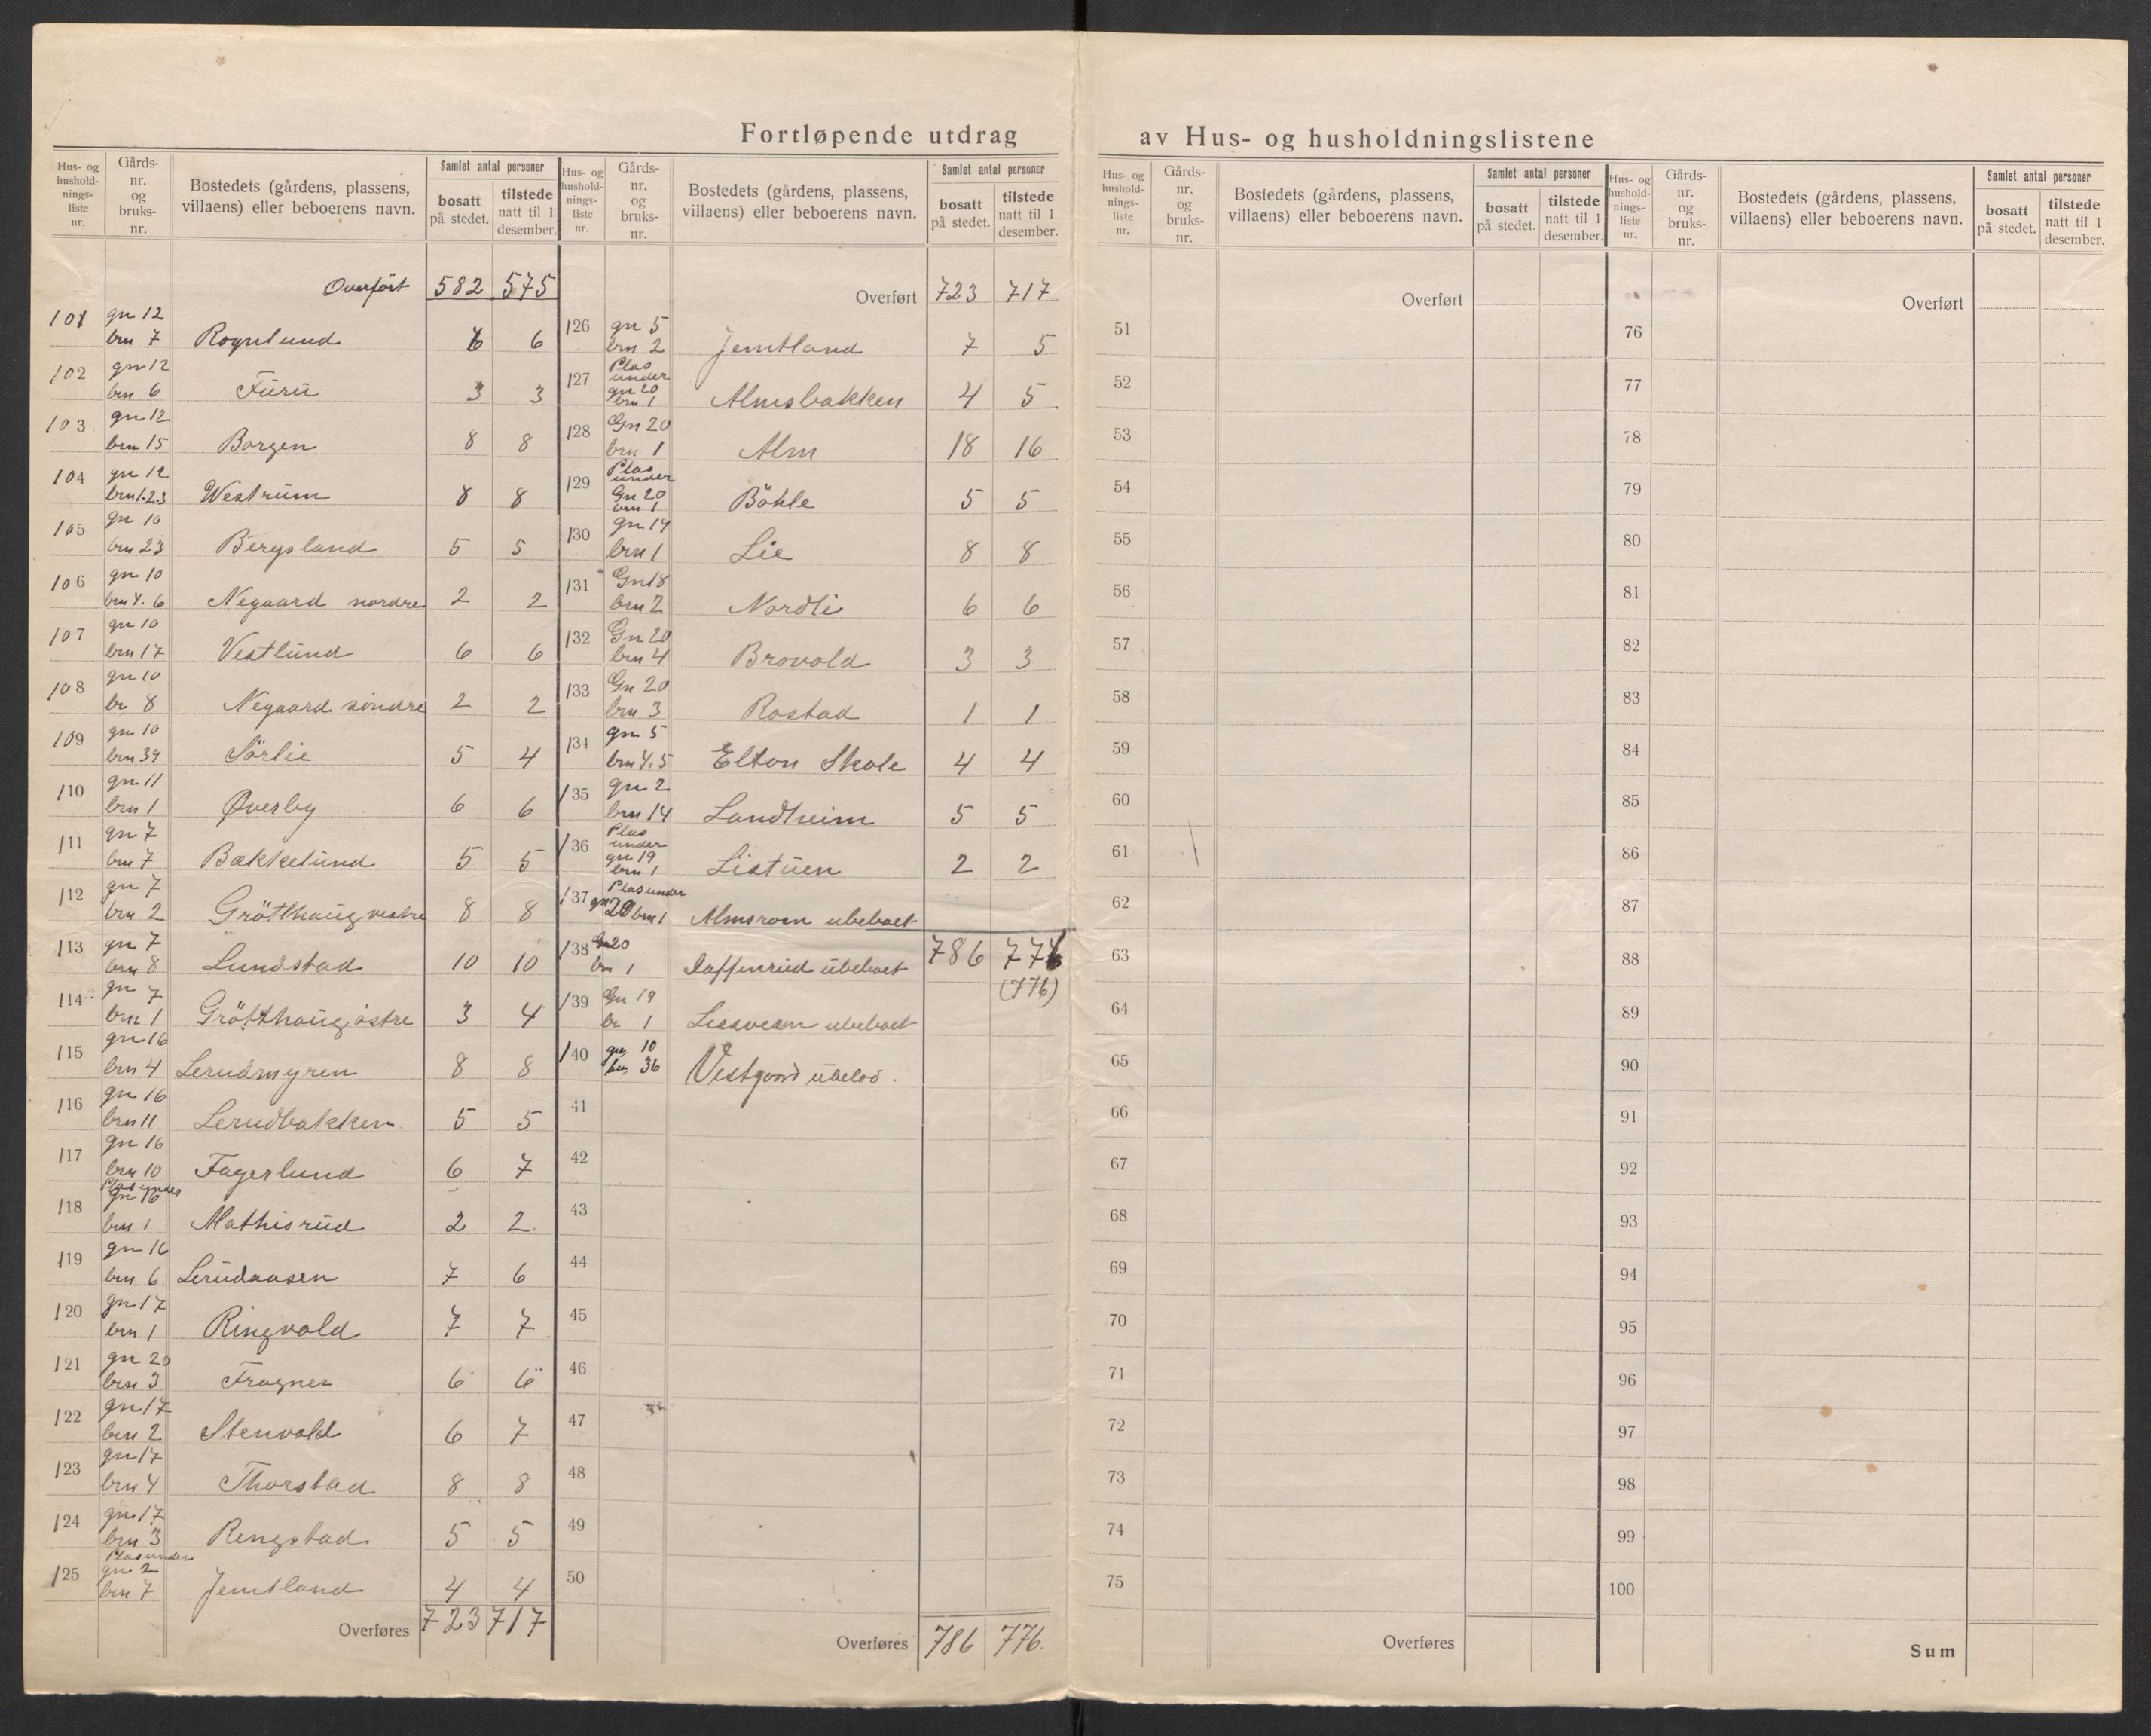 Fortløpende utdrag av Hus- og husholdningslistene
Hus- og husholdningsliste nr. Gårdsnr. og bruksnr. Bostedets (gårdens, plassens, villaens) eller beboerens navn. Samlet antal personer bosatt på stedet. tilstede natt til 1 desember.
Overført 582 575
101 gn 12 brn 7 Rognlund 6 6
102 gn 12 brn 6 Furu 3 3
103 gn 12 brn 15 Borgen 8 8
104 gn 12 brn 1.2.3 Westrum 8 8
105 gn 10 brn 23 Bergsland 5 5
106 gn 10 brn 4.6 Negaard nordre 2 2
107 gn 10 brn 17 Vestlund 6 6
108 gn 10 br 8 Negaard söndre 2 2
109 gn 10 brn 39 Sörlie 5 4
110 gn 11 brn 1 Øverby 6 6
111 gn 7 brn 7 Bækkelund 5 5
112 gn 7 brn 2 Grötthaug vestre 8 8
113 gn 7 brn 8 Lundstad 10 10
114 gn 7 brn 1 Grötthaug östre 3 4
115 gn 16 brn 4 Lerudmyren 8 8
116 gn 16 brn 11 Lerudbakken 5 5
117 gn 16 brn 10 Fagerlund 6 7
118 Plas under gn 16 brn 1 Mathisrud 2 2
119 gn 16 brn 6 Lerudaasen 7 6
120 gn 17 brn 1 Ringvold 7 7
121 gn 20 brn 3 Frogner 6 6
122 gn 17 brn 2 Stenvold 6 7
123 gn 17 brn 4 Thorstad 8 8
124 gn 17 brn 3 Ringstad 5 5
125 Plas under gn 2 brn 7 Jemtland 4 4
Overføres 723 717
Hus- og husholdningsliste nr. Gårdsnr. og bruksnr. Bostedets (gårdens, plassens, villaens) eller beboerens navn. Samlet antal personer bosatt på stedet. tilstede natt til 1 desember.
Overført 723 717
126 gn 5 brn 2 Jemtland 7 5
127 Plas under gn 20 brn 1 Almsbakken 4 5
128 Gn 20 brn 1 Alm 18 16
129 Plas under Gn 20 brn 1 Böhle 5 5
130 gn 14 brn 1 Lie 8 8
131 Gn 18 brn 2 Nordli 6 6
132 Gn 20 brn 4 Brovold 3 3
133 Gn 20 brn 3 Rostad 1 1
134 gn 5 brn 4.5 Elton Skole 4 4
135 gn 2 brn 14 Landheim 5 5
136 Plas under gn 19 brn 1 Listuen 2 2
137 Plas under gn 20 brn 1 Almsroen ubeboet
138 Gn 20 brn 1 ubeboet 786 776
(776)
139 Gn 19 br 1 ubeboet
140 gn 10 brn 36 Vestgaard ubebod.
41
42
43
44
45
46
47
48
49
50
Overføres 786 776.
Hus- og husholdningsliste nr. Gårdsnr. og bruksnr. Bostedets (gårdens, plassens, villaens) eller beboerens navn. Samlet antal personer bosatt på stedet. tilstede natt til 1 desember.
Overført
51
52
53
54
55
56
57
58
59
60
61
62
63
64
65
66
67
68
69
70
71
72
73
74
75
Overføres
Hus- og husholdningsliste nr. Gårdsnr. og bruksnr. Bostedets (gårdens, plassens, villaens) eller beboerens navn. Samlet antal personer bosatt på stedet. tilstede natt til 1 desember.
Overført
76
77
78
79
80
81
82
83
84
85
86
87
88
89
90
91
92
93
94
95
96
97
98
99
100
Sum